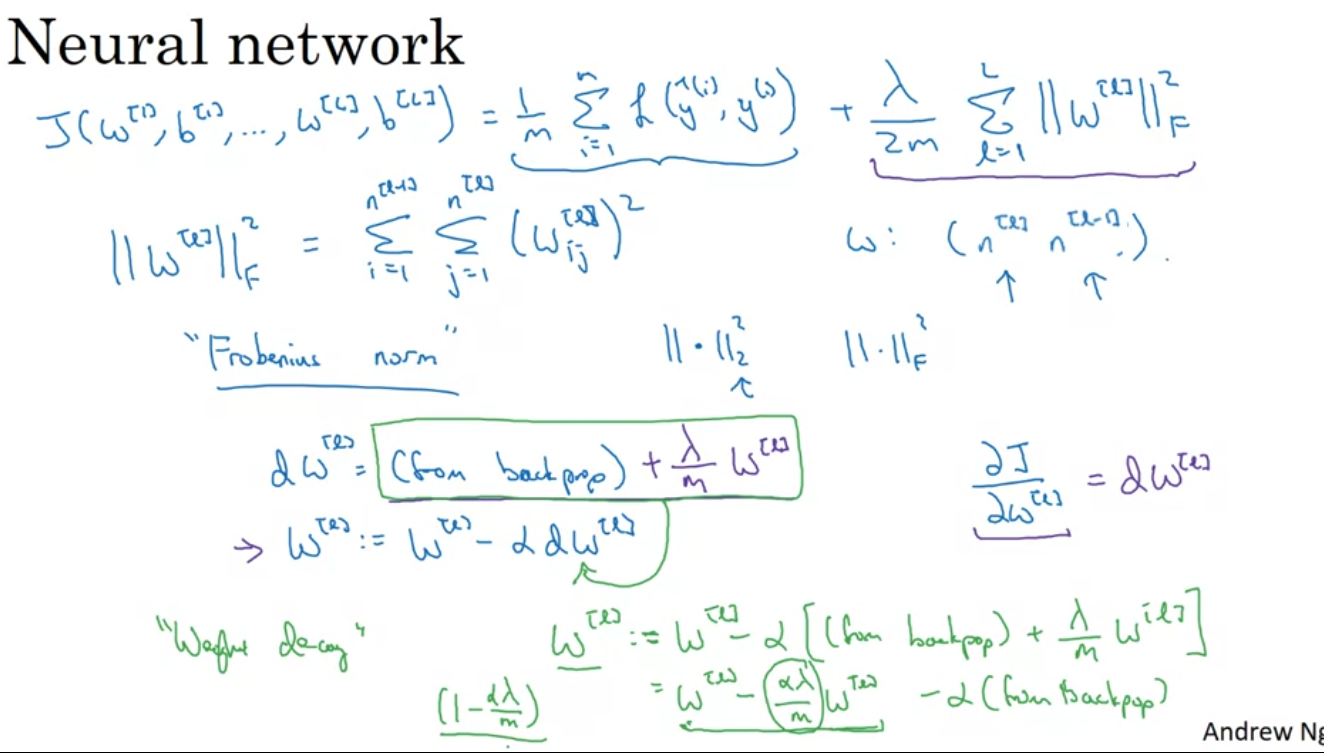 Neural network
J(w^[1], b^[1], ..., w^[L], b^[L]) = 1/m Σ_{i=1}^{n} L(ŷ^(i), y^(i)) + λ/2m Σ_{l=1}^{L} ||w^[l]||²_F
||w^[l]||²_F = Σ_{i=1}^{n^[l-1]} Σ_{j=1}^{n^[l]} (w_ij^[l])² w: (n^[l] n^[l-1]).
"Frobenius norm" ||·||²_2 ||·||²_F
dw^[l] = (from backprop) + λ/m w^[l] ∂J/∂w^[l] = dw^[l]
→ w^[l] := w^[l] - α dw^[l]
"Weight decay" w^[l] := w^[l] - α[(from backprop) + λ/m w^[l]]
(1 - αλ/m) = w^[l] - αλ/m w^[l] - α(from backprop)
Andrew Ng